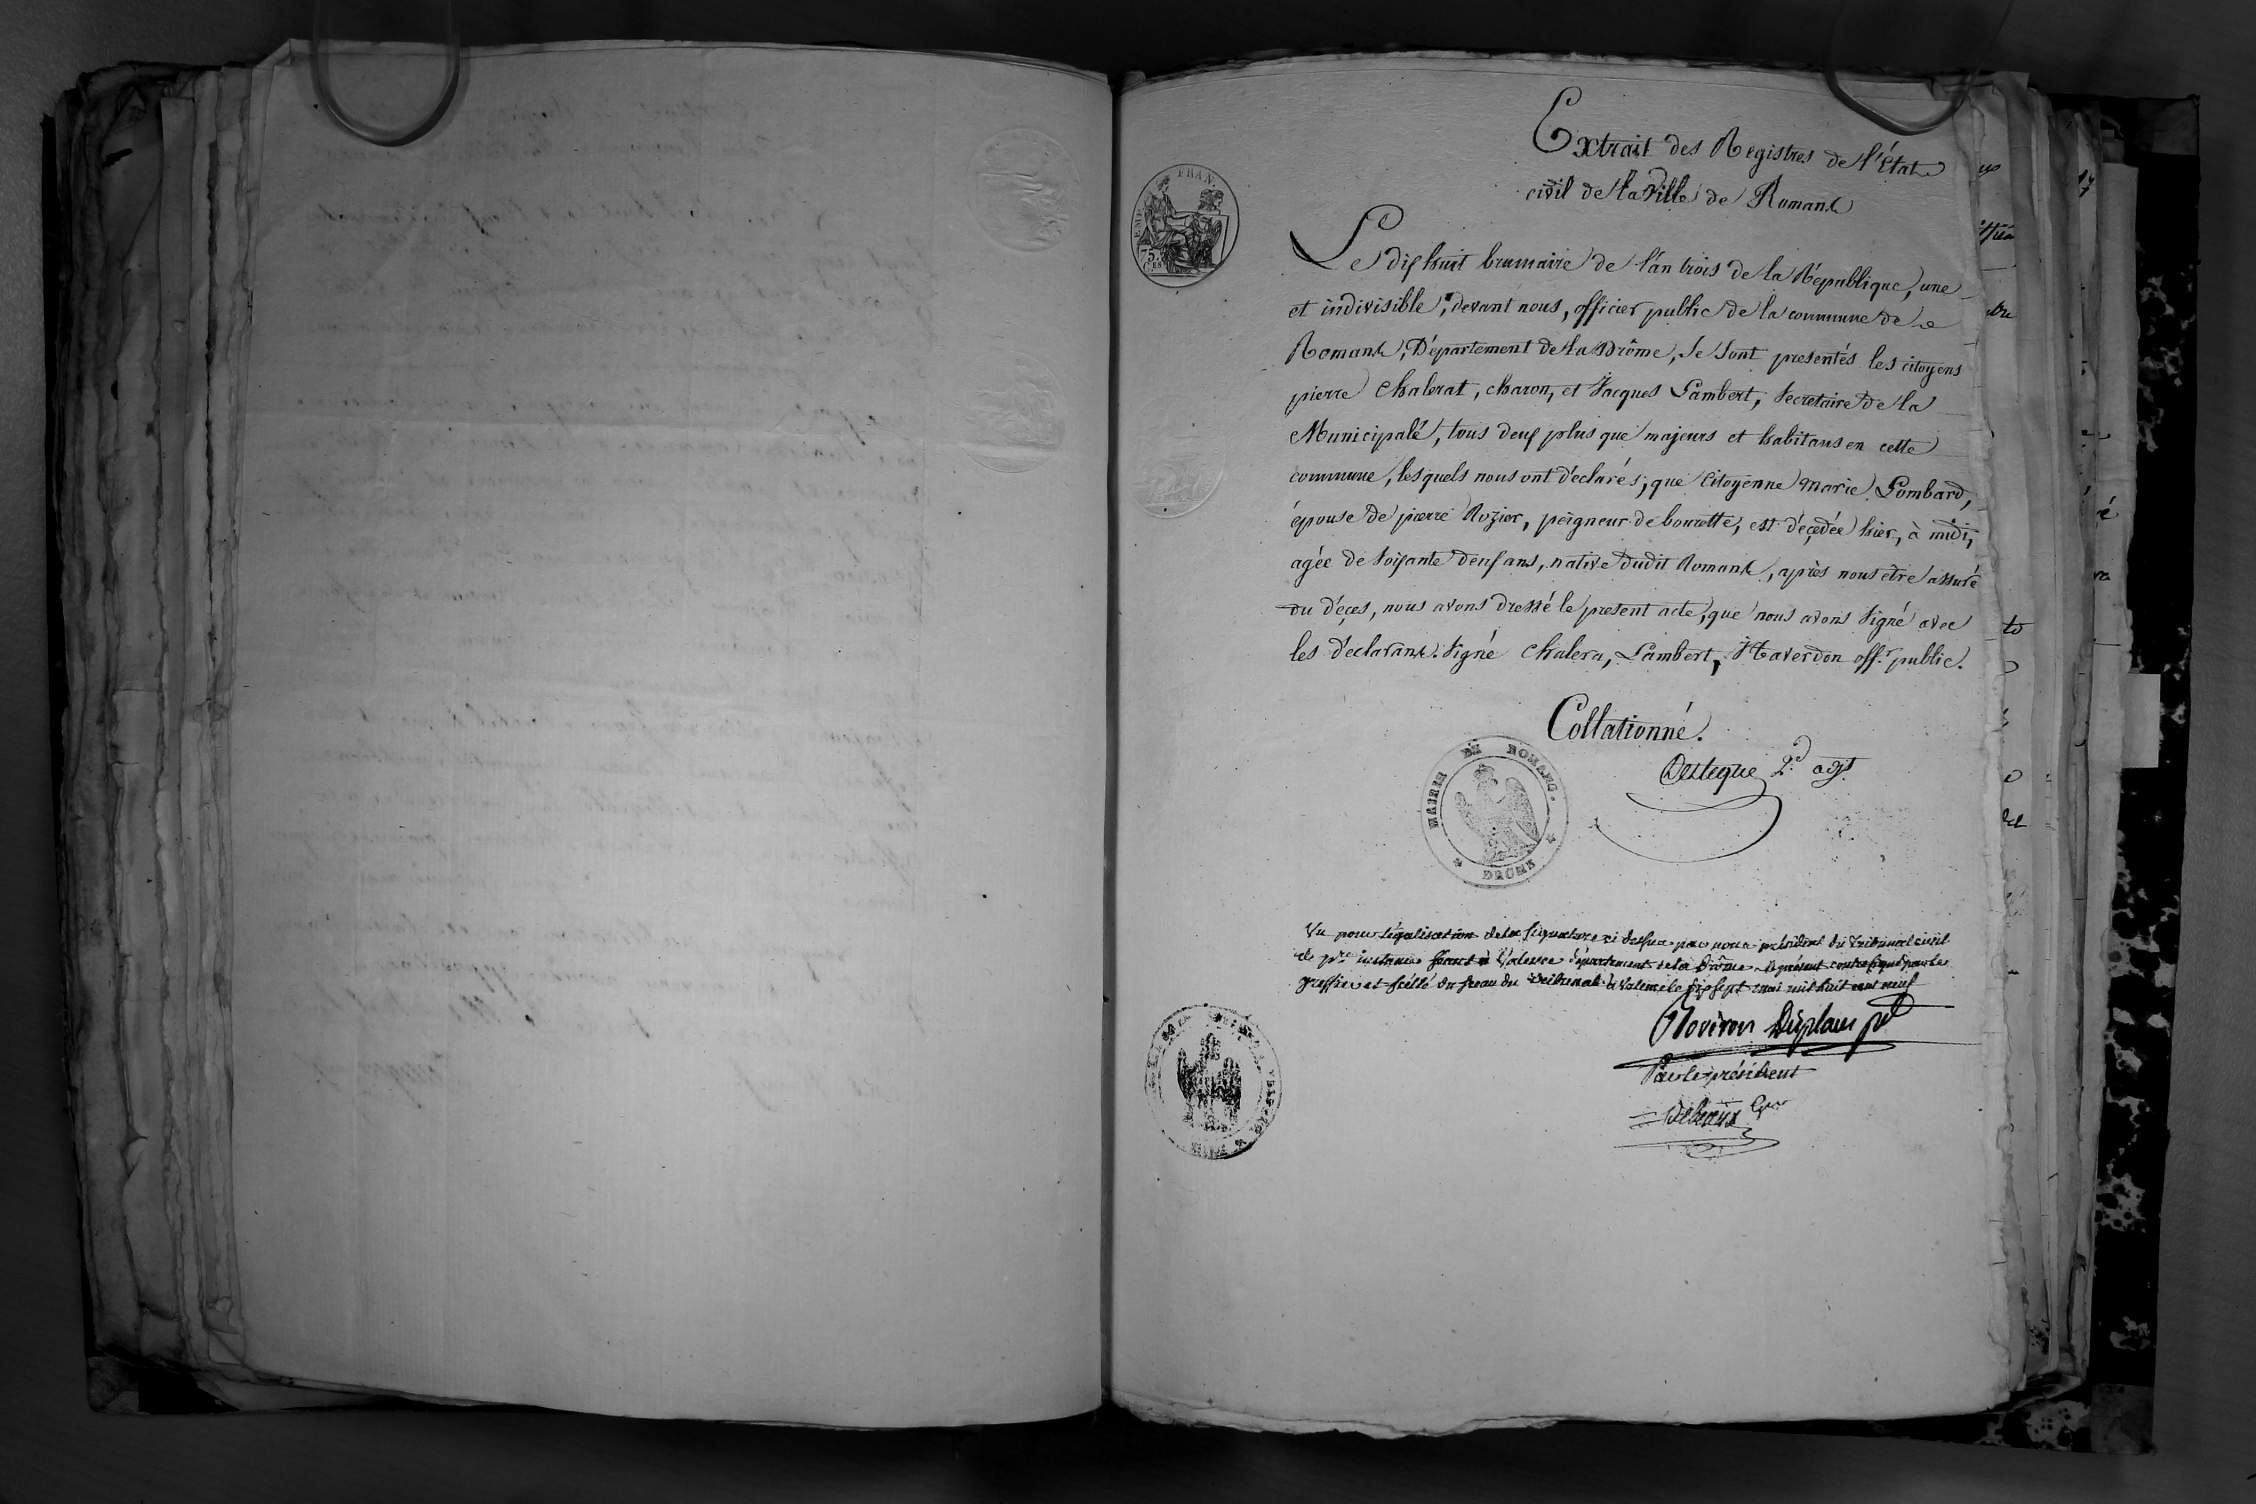 Extrait des Registres de l'état
civil de la Ville de Romans
FRAN.
EMP.
75.
Ces
Le dix huit brumaire de l'an trois de la République, une
et indivisible, devant nous, officier public de la commune de
Romans, Département de la Drôme, se sont presentés les citoyens
pierre Chalerat, charon, et Jacques Lambert, Secretaire de la
Municipalé, tous deux plus que majeurs et habitans en cette
commune, lesquels nous ont déclarés; que Citoyenne Marie Lombard,
épouse de pierre Rozier, peigneur de bourette, est décedée hier, à midi,
agée de soixante deux ans, native dudit Romans, après nous etre assuré
du déçes, nous avons dressé le present acte, que nous avons signé avec
les déclarans. Signé Chalera, Lambert, off.r public.
Collationné.
2.d adjt
MAIRIE DE ROMANS.
DRÔME
Vu pour légalisation de la signature ci dessus par nous président du tribunal civil
de pre instance séant à Valence département de la Drôme le présent contresigné par le
greffier et scéllé du sceau du tribunal à Valence le dix sept mai mil huit cent neuf
pdt
Par le président